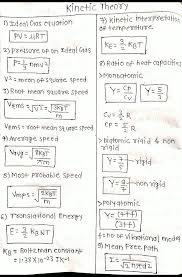 Kinetic Theory
1) Ideal Gas equation
PV = μRT
2) Pressure of an Ideal Gas
P = 1/3 nmv²
v² = mean of square speed
3) Root mean square speed
Vrms = √v² = √(3KBT/m)
Vrms = root mean square speed
4) Average speed
Vavg = √(8KBT/πm)
5) Most probable speed
Vmps = √(2KBT/m)
6) Translational Energy
E = 3/2 KBNT
KB = Boltzman constant
= 1.38 × 10⁻²³ JK⁻¹
7) Kinetic Interpretation
of temperature
KE = 3/2 KBT
8) Ratio of heat capacities
γ = 5/3
Cv = 3/2 R
Cp = 5/2 R
γ = 7/5
γ = 9/7
γ = (4+f)/(3+f)
f = no of vibrational mode
9) Mean Free Path